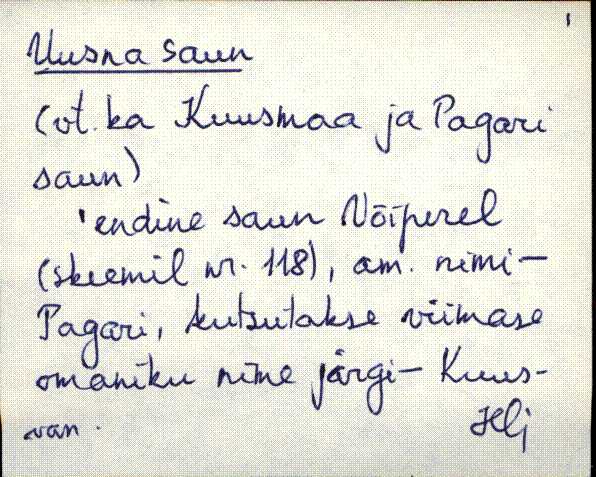 1
Uusna saun
(vt. ka Kuusmaa ja Pagari
saun)
'endine saun Võiperel
(skeemil nr. 118), am. nimi-
Pagari, kutsutakse viimase
omaniku nime järgi- Kuus-
van.
Hlj